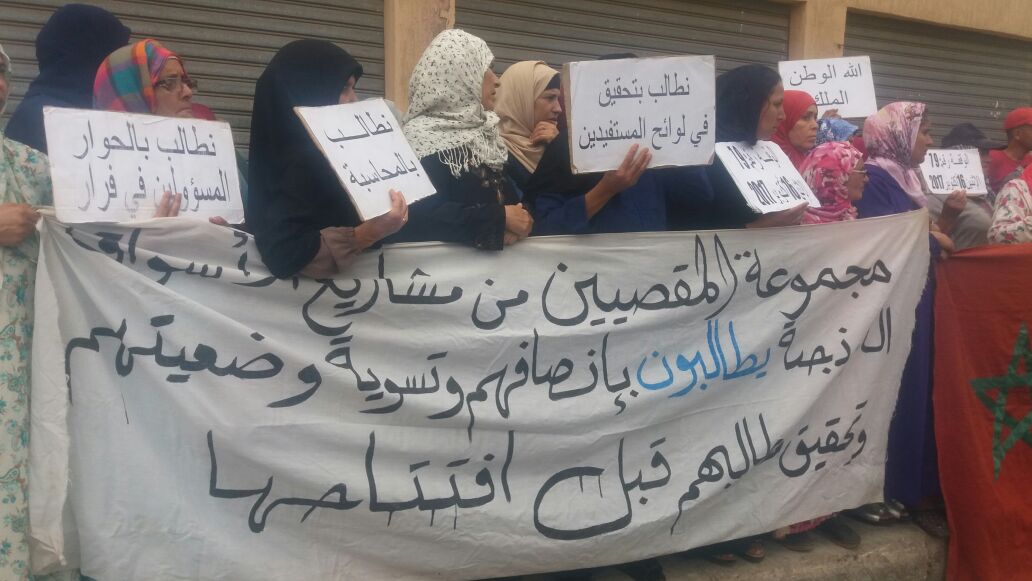 نطالب بالحوار
المسؤولين في فرار
نطالب
بالمحاسبة
نطالب بتحقيق
في لوائح المستفيدين
الله الوطن
الملك
الوقفة رقم 79
الإثنين 16 أكتوبر 2017
مجموعة المقصيين من مشاريع الأسواق
يطالبون بإنصافهم وتسوية وضعيتهم
وتحقيق طالبهم قبل افتتاحها